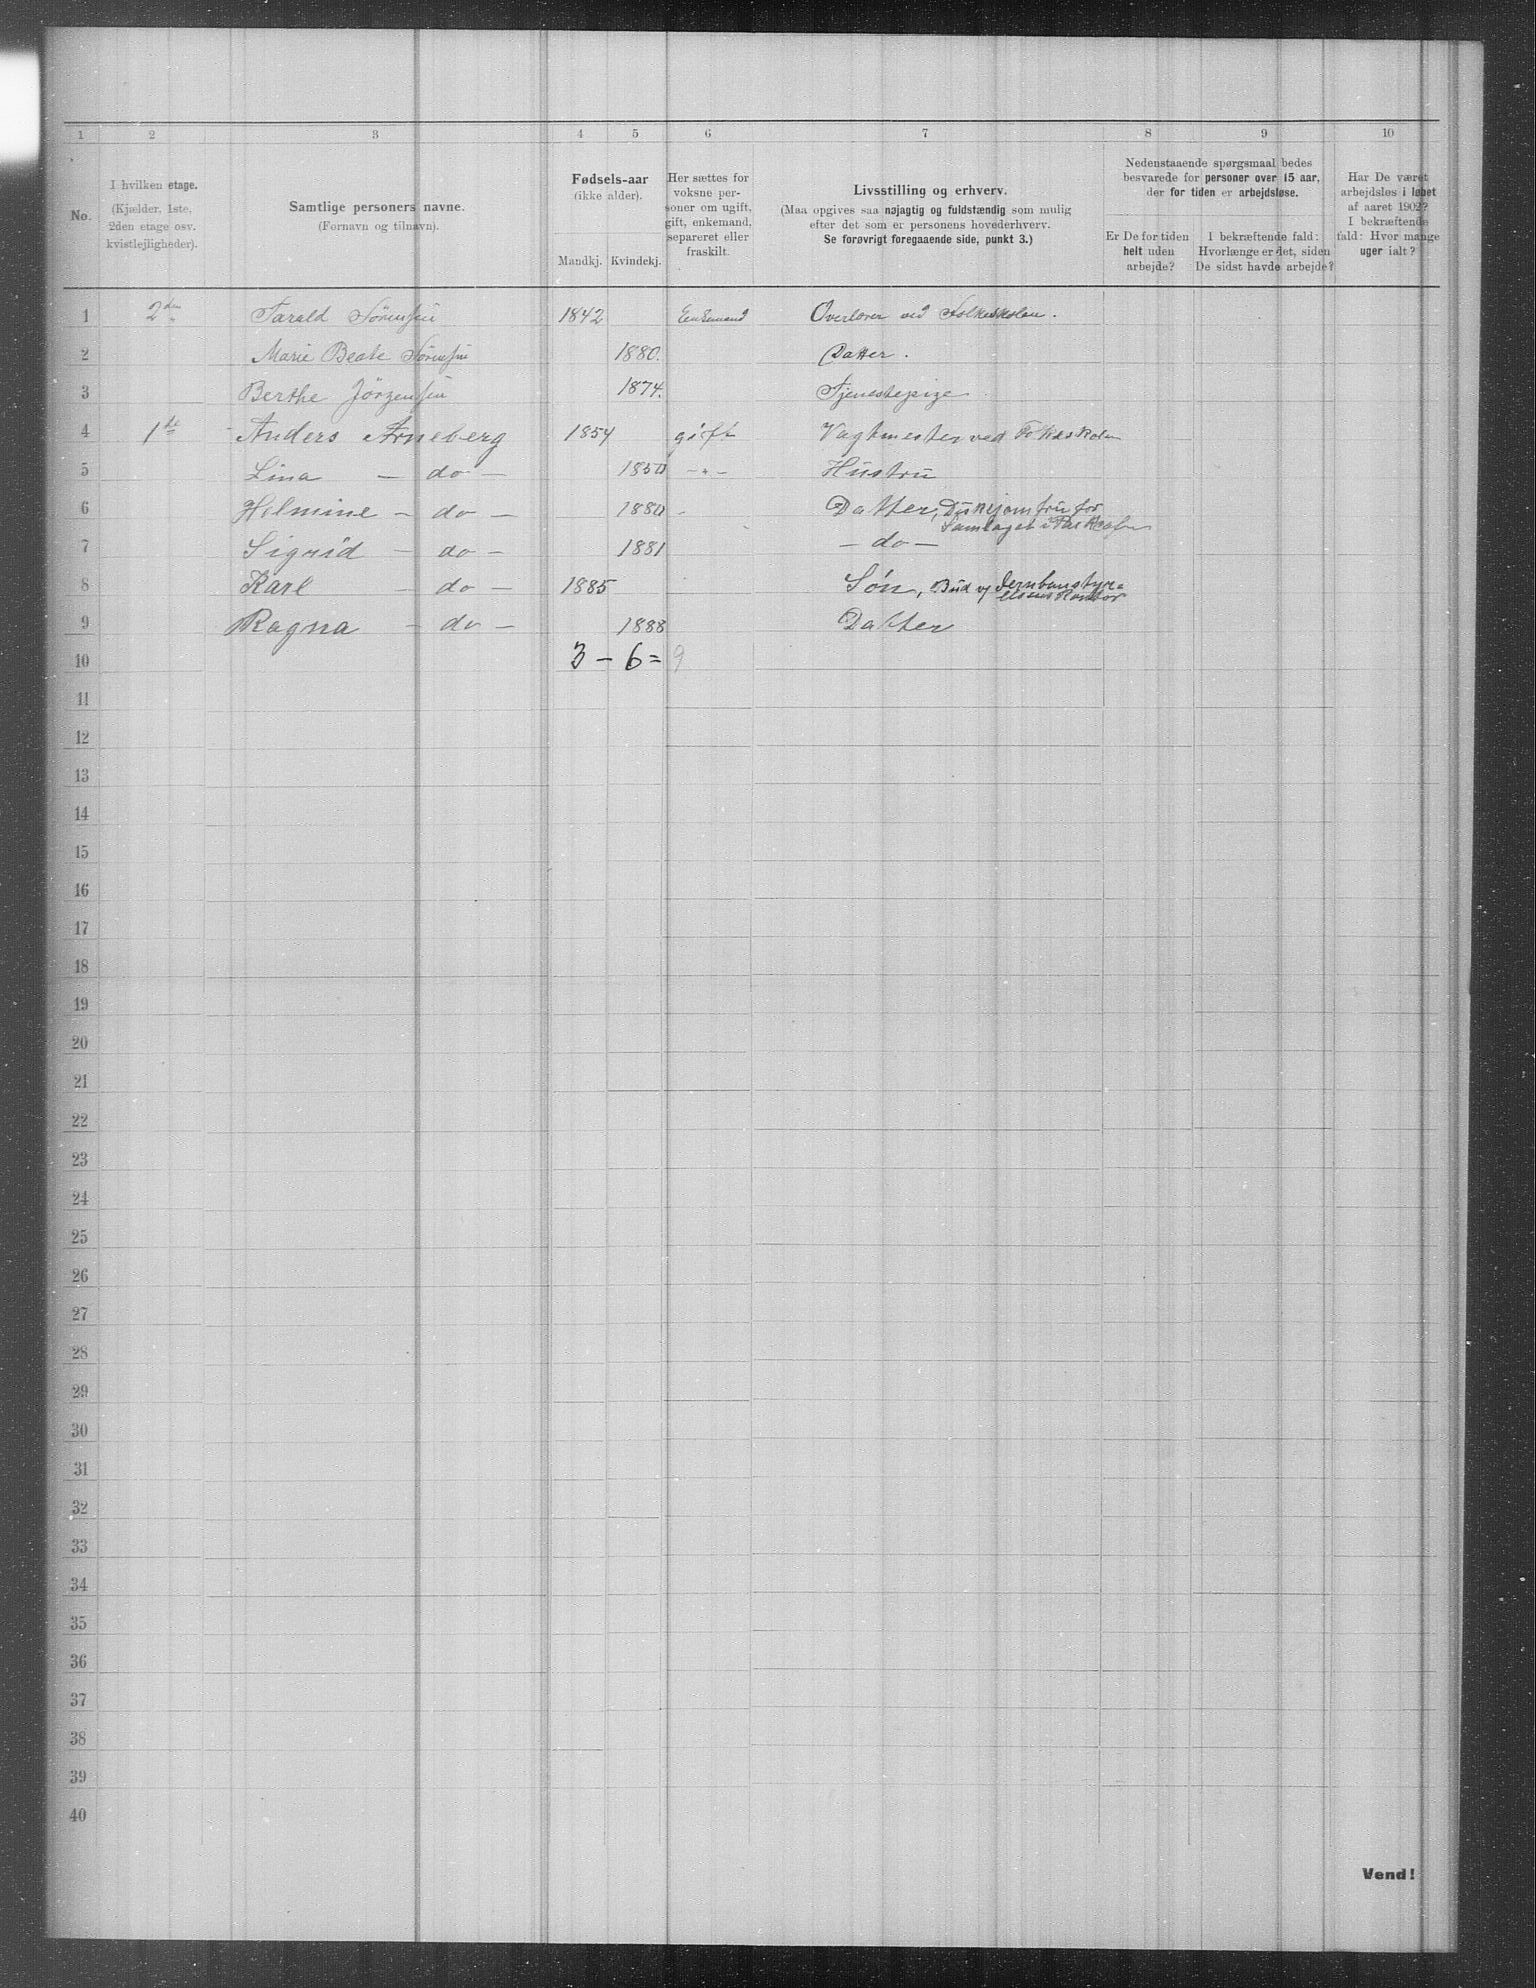 1 2 3 4 5 6 7 8 9 10
No.
I hvilken etage.
(Kjælder, 1ste,
2den etage osv.
kvistlejligheder).
Samtlige personers navne.
(Fornavn og tilnavn).
Fødsels-aar
(ikke alder).
Mandkj. Kvindekj.
Her sættes for
voksne per-
soner om ugift,
gift, enkemand,
separeret eller
fraskilt.
Livsstilling og erhverv.
(Maa opgives saa nøjagtig og fuldstændig som mulig
efter det som er personens hovederhverv.
Se forøvrigt foregaaende side, punkt 3.)
Nedenstaaende spørgsmaal bedes
besvarede for personer over 15 aar,
der for tiden er arbejdsløse.
Er De for tiden
helt uden
arbejde?
I bekræftende fald:
Hvorlænge er det, siden
De sidst havde arbejde?
Har De været
arbejdsløs i løbet
af aaret 1902?
I bekræftende
fald: Hvor mange
uger ialt?
1 2den Tarald Sörensen 1842 Enkemand Overlærer ved Folkeskolen.
2 Marie Beate Sörensen 1880. Datter.
3 Berthe Jörgensen 1874. Tjenestepige
4 1ste Anders Arneberg 1854 gift Vagtmester ved Folkeskolen
5 Lina - do - 1850 - " - Hustru
6 Helmine - do - 1880 - Datter, Diskejomfru for
Samlaget i
7 Sigrid - do - 1881 - do -
8 Karl - do - 1885 Søn, Bud og Jernbanestyre=
elsens Kontor
9 Ragna - do - 1888 Datter
10 3 - 6 = 9
11
12
13
14
15
16
17
18
19
20
21
22
23
24
25
26
27
28
29
30
31
32
33
34
35
36
37
38
39
40
Vend!